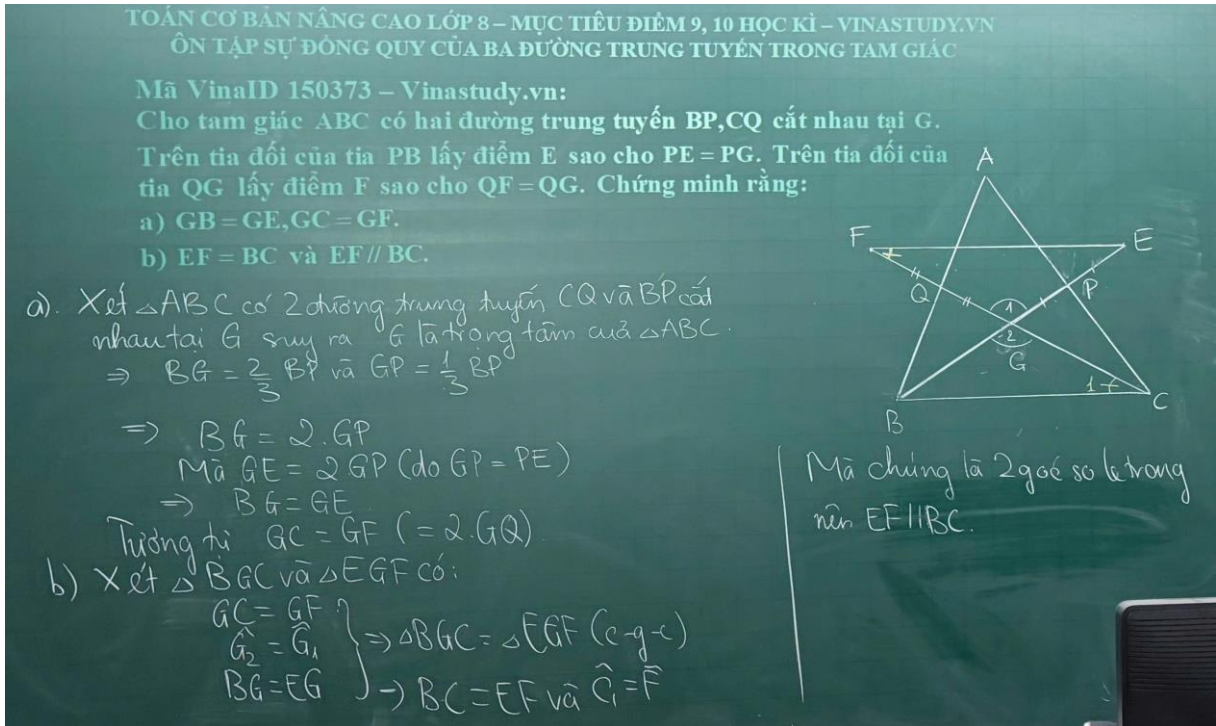 TOÁN CƠ BẢN NÂNG CAO LỚP 8 – MỤC TIÊU ĐIỂM 9, 10 HỌC KÌ – VINASTUDY.VN
ÔN TẬP SỰ ĐỒNG QUY CỦA BA ĐƯỜNG TRUNG TUYẾN TRONG TAM GIÁC
Mã VinaID 150373 – Vinastudy.vn:
Cho tam giác ABC có hai đường trung tuyến BP,CQ cắt nhau tại G.
Trên tia đối của tia PB lấy điểm E sao cho PE = PG. Trên tia đối của
tia QG lấy điểm F sao cho QF = QG. Chứng minh rằng:
a) GB = GE,GC = GF.
b) EF = BC và EF // BC.
a). Xét △ABC có 2 đường trung tuyến CQ và BP cắt
nhau tại G suy ra G là trọng tâm của △ABC.
⇒ BG = 2/3 BP và GP = 1/3 BP
⇒ BG = 2.GP
Mà GE = 2GP (do GP = PE)
⇒ BG = GE
Tương tự GC = GF (= 2.GQ).
b) Xét △BGC và △EGF có:
GC = GF
Ĝ₂ = Ĝ₁
BG = EG
⇒ △BGC = △EGF (c-g-c)
⇒ BC = EF và Ĉ₁ = F̂
A
F
E
Q
P
1
2
G
1
B
C
Mà chúng là 2 góc so le trong
nên EF // BC.